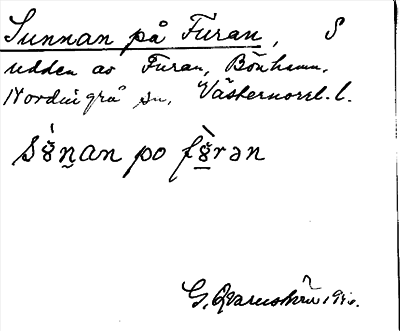 Sunnan på Furan, S
udden av Furan, Bönhamn,
Nordingrå sn, Västernorrl. l.
sö̀nan po fö̀rən
G. Qvarnström 1946.